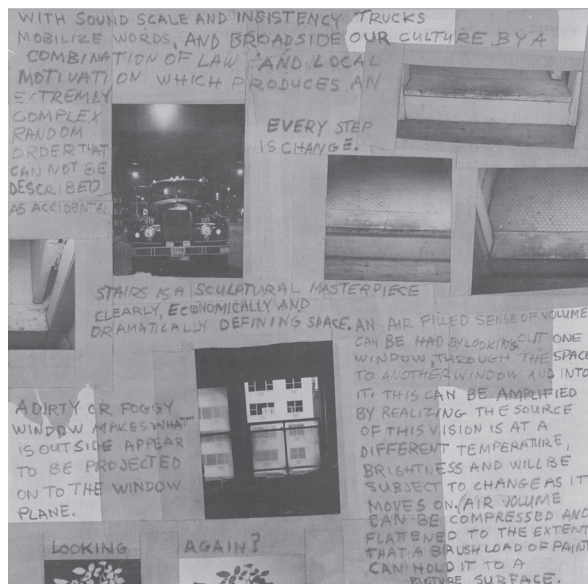 WITH SOUND SCALE AND INSISTENCY TRUCKS
MOBILIZE WORDS, AND BROADSIDE OUR CULTURE BY A
COMBINATION OF LAW AND LOCAL
MOTIVATION WHICH PRODUCES AN
EXTREMLY
COMPLEX
RANDOM
ORDER THAT
CAN NOT BE
DESCRIBED
AS ACCIDENTAL.
EVERY STEP
IS CHANGE.
STAIRS IS A SCULPTURAL MASTERPIECE
CLEARLY, ECONOMICALLY AND
DRAMATICALLY DEFINING SPACE.
AN AIR FILLED SENSE OF VOLUME
CAN BE HAD BY LOOKING OUT ONE
WINDOW, THROUGH THE SPACE
TO ANOTHER WINDOW AND INTO
IT. THIS CAN BE AMPLIFIED
BY REALIZING THE SOURCE
OF THIS VISION IS AT A
DIFFERENT TEMPERATURE,
BRIGHTNESS AND WILL BE
SUBJECT TO CHANGE AS IT
MOVES ON. AIR VOLUME
CAN BE COMPRESSED AND
FLATTENED TO THE EXTENT
THAT A BRUSH LOAD OF PAINT
CAN HOLD IT TO A
PICTURE SURFACE.
A DIRTY OR FOGGY
WINDOW MAKES WHAT
IS OUTSIDE APPEAR
TO BE PROJECTED
ON TO THE WINDOW
PLANE.
LOOKING AGAIN?